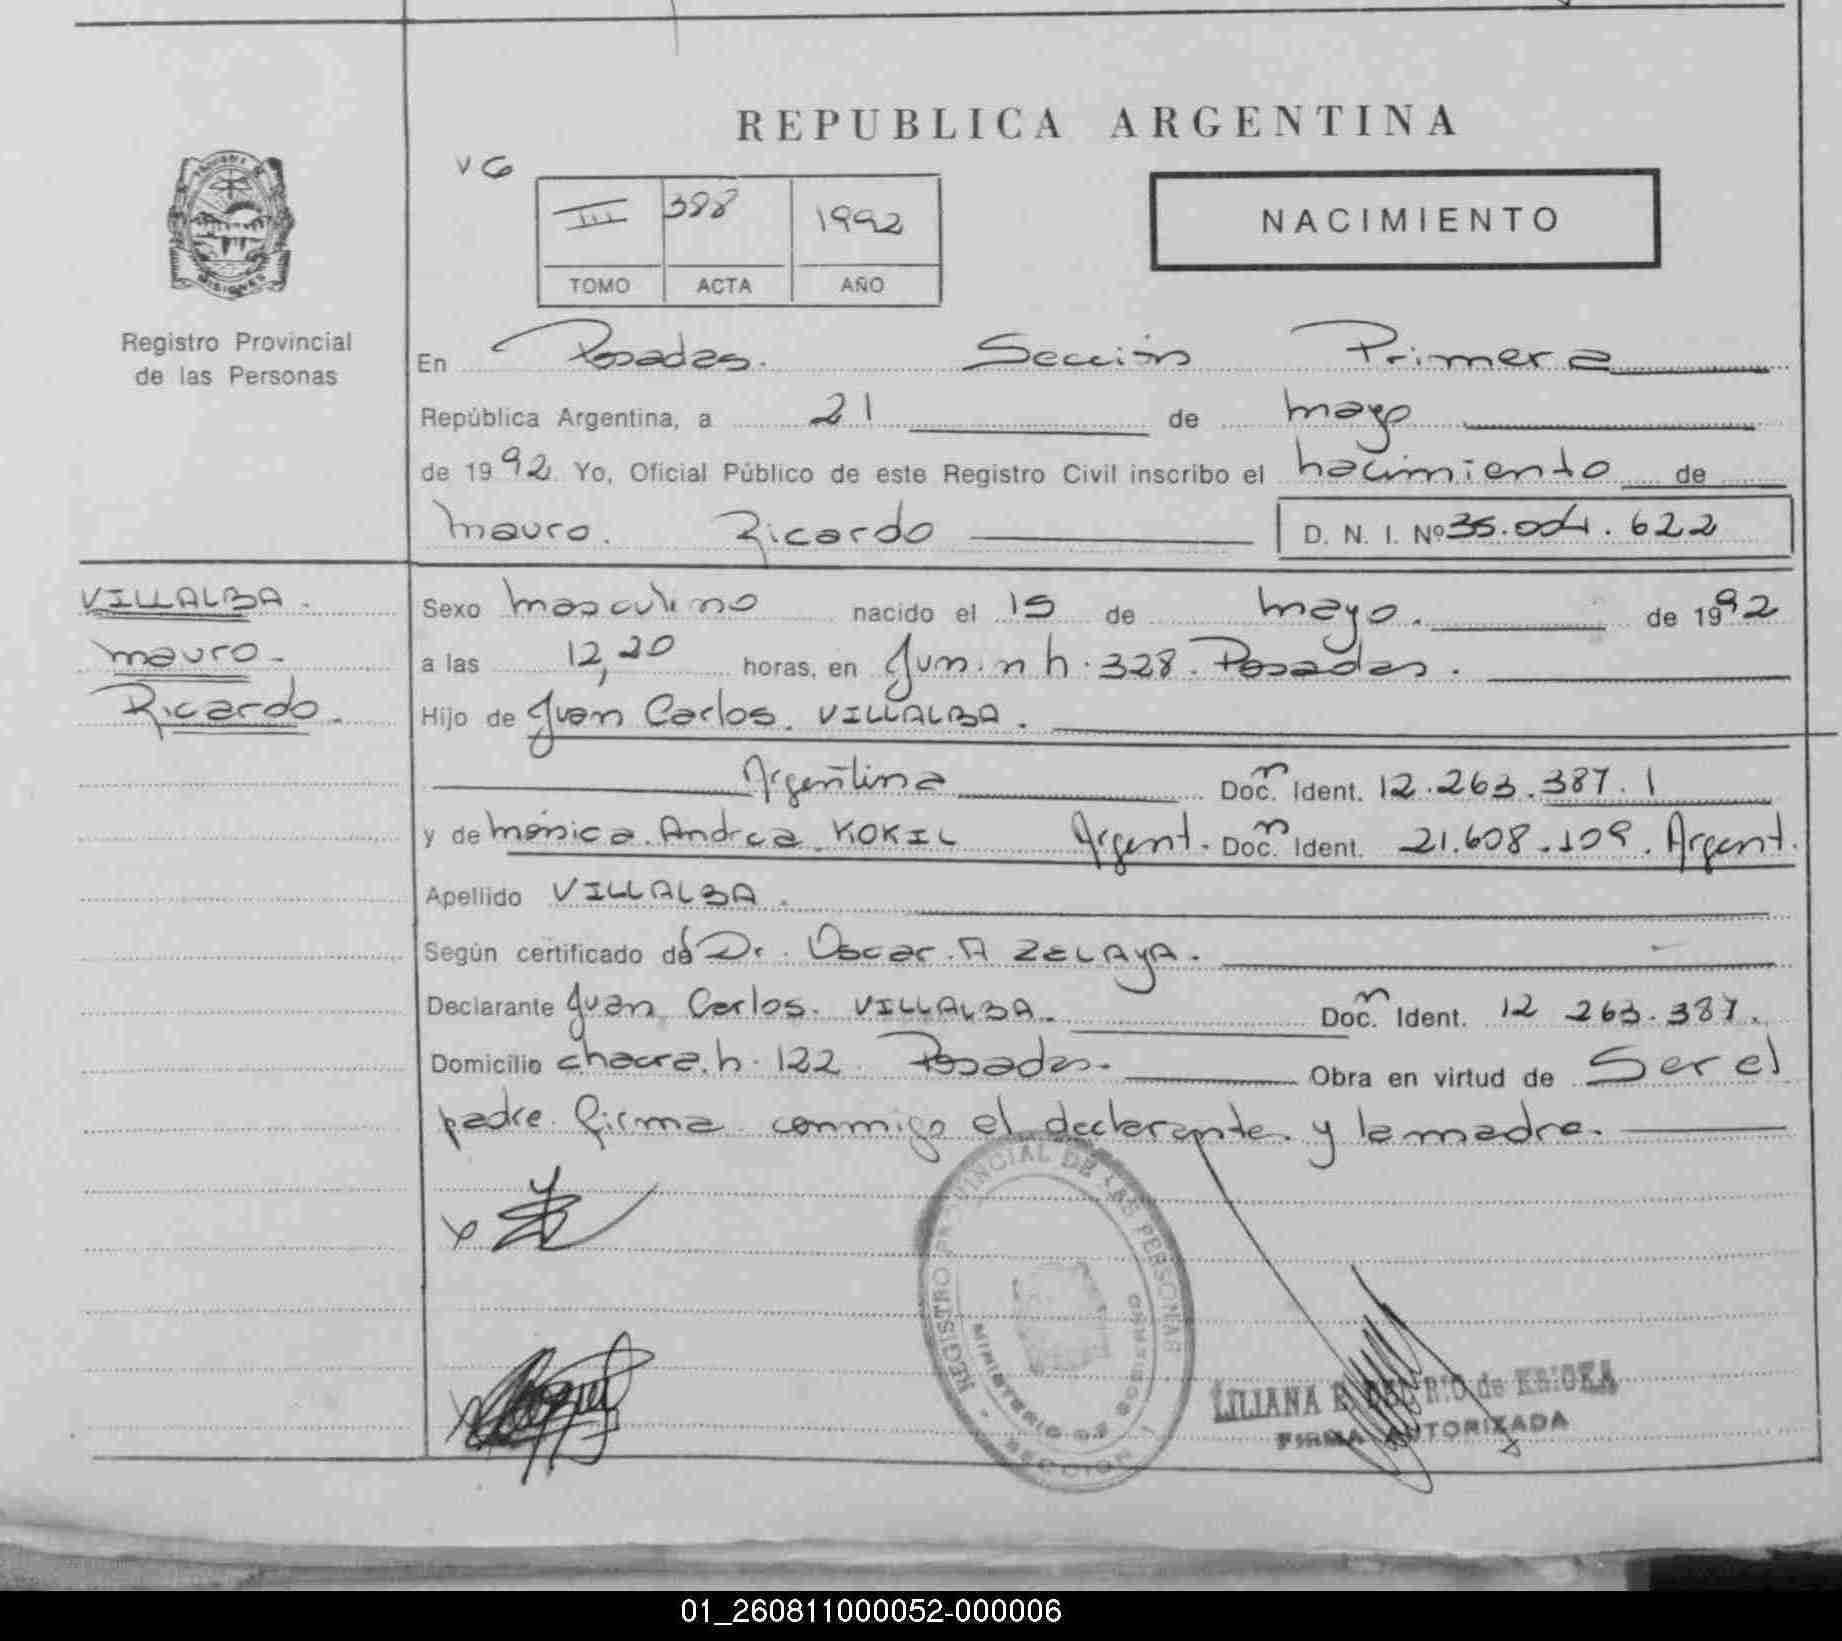 REPUBLICA ARGENTINA
VG
III 388 1992
TOMO ACTA AÑO
NACIMIENTO
MISIONES
Registro Provincial
de las Personas
En Posadas. Sección Primera
República Argentina, a 21 de mayo
de 1992. Yo, Oficial Público de este Registro Civil inscribo el nacimiento de
Mauro. Ricardo D. N. I. Nº 35.004.622
VILLALBA.
Mauro.
Ricardo.
Sexo masculino nacido el 15 de mayo. de 1992
a las 12,20 horas, en Jun. n h. 328. Posadas.
Hijo de Juan Carlos. VILLALBA.
Argentina Doc. n Ident. 12.263.387.1
y de Mónica. Andrea. KOKIL Argent. Doc. n Ident. 21.608.109. Argent.
Apellido VILLALBA.
Según certificado del Dr. Oscar. A ZELAYA.
Declarante Juan Carlos. VILLALBA. Doc. n Ident. 12 263.387.
Domicilio chacra. h. 122. Posadas. Obra en virtud de Ser el
padre. firma conmigo el declarante. y la madre.
REGISTRO PROVINCIAL DE LAS PERSONAS
MINISTERIO DE GOBIERNO
SECCION 1
LILIANA E. DEL RIO de
FIRMA AUTORIZADA
01_260811000052-000006